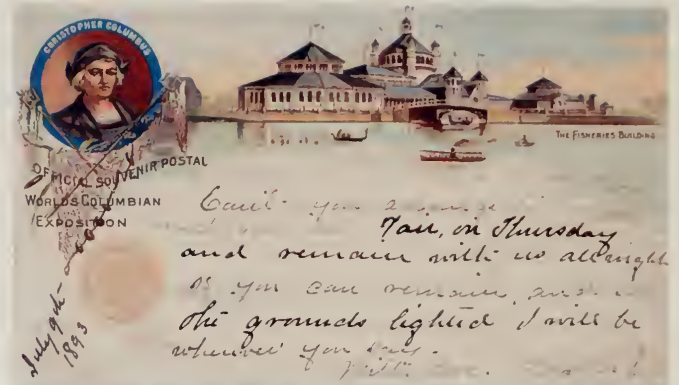 CHRISTOPHER COLUMBUS
THE FISHERIES BUILDING
OFFICIAL SOUVENIR POSTAL
WORLDS COLUMBIAN
EXPOSITION
Can't you
on Thursday
and remain with us all night
If you can remain, and
the grounds lighted I will be
wherever you say.
July 9th
1893